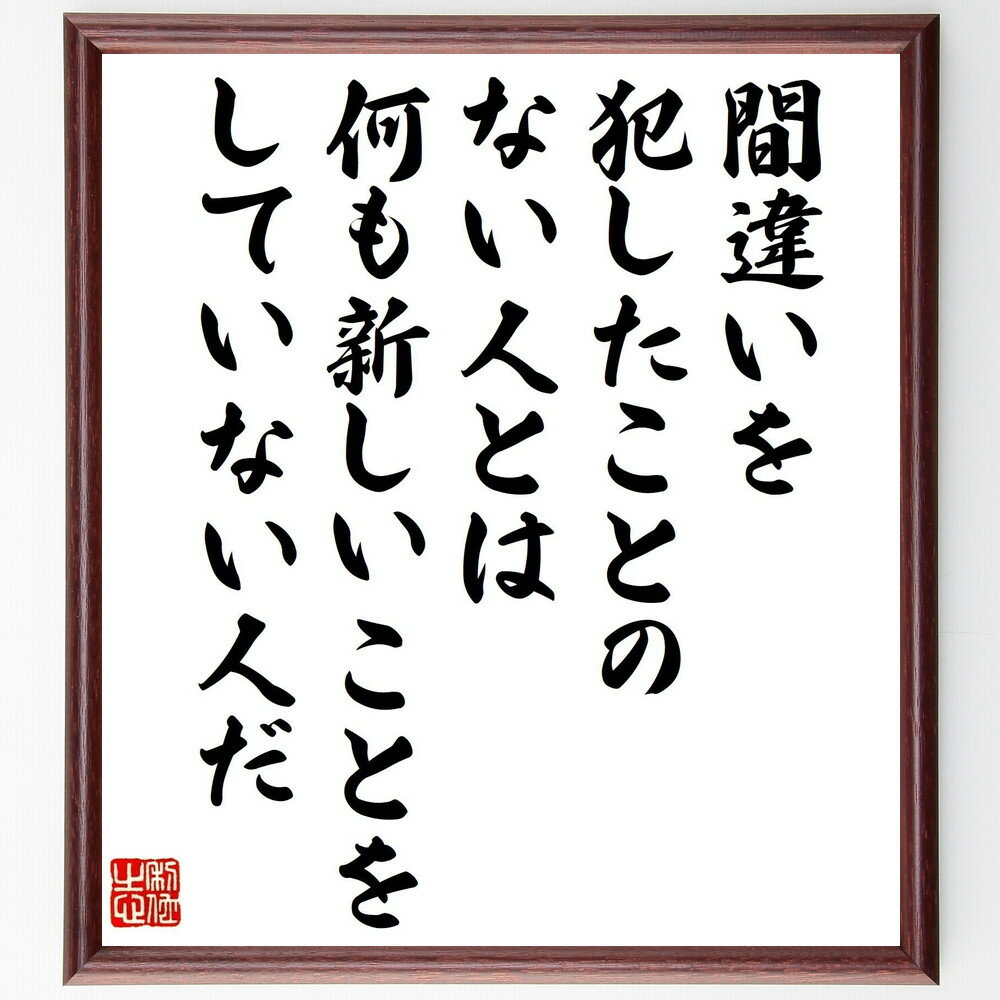 間違いを
犯したことの
ない人とは
何も新しいことを
していない人だ